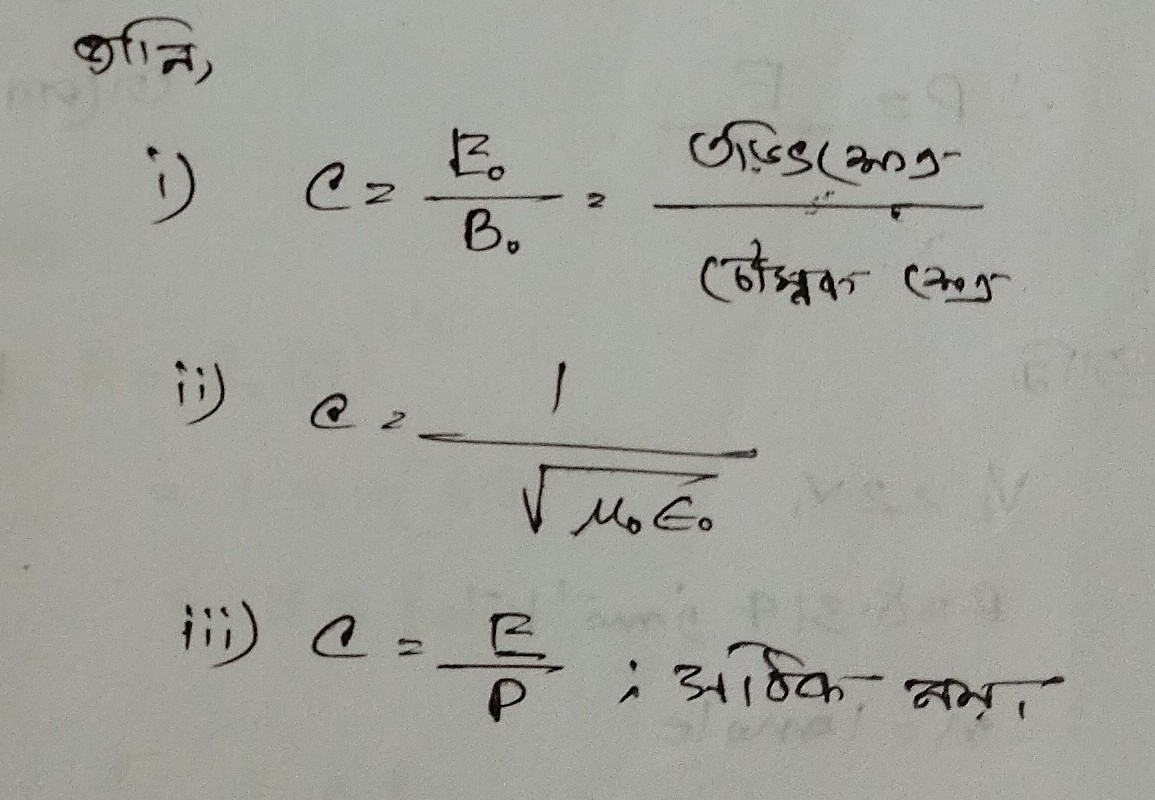 জানি,
i) C = E₀ / B₀ = তড়িৎক্ষেত্র / চৌম্বক ক্ষেত্র
ii) C = 1 / √μ₀ε₀
iii) C = E / P ; সঠিক নয়।